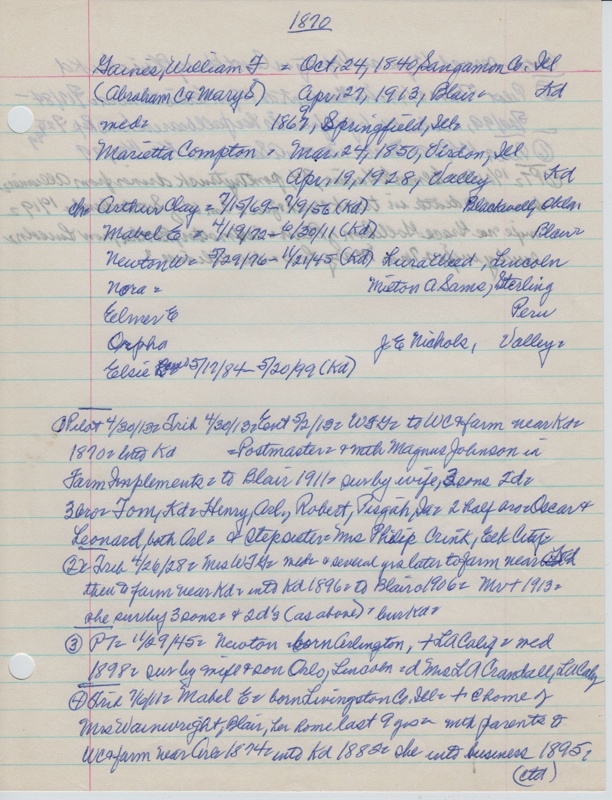 1870
Gaines, William F = Oct. 24, 1840, Sangamon Co. Ill
(Abraham C & Mary S) Apr. 27, 1913, Blair= Kd
med= 1867, Springfield, Ill=
Marietta Compton = Mar. 24, 1850, Virden, Ill
Apr. 19, 1928, Valley Kd
ch= Arthur Clay = 7/15/69- 7/9/56 (Kd) Blackwell, Okla
Mabel E = 4/19/72 - 6/30/11 (Kd) Blair
Newton W = 5/29/76 - 11/21/45 (Kd) Lura Weed, Lincoln
Nora = Milton A Sams, Sterling
Elmer E Peru
Orpha J E Nichols, Valley=
Elsie 5/17/84 - 5/20/99 (Kd)
① Pilot 4/30/13= Trib 4/30/13= Ent 5/2/13= WFG= to WC & farm near Kd=
1870= into Kd =Postmaster= & with Magnus Johnson in
Farm Implements= to Blair 1911= sur by wife, 3 sons 2d=
3 bro= Tom, Kd= Henry, Arl, Robert, Tisgah, Ia= 2 half bro= Oscar &
Leonard, both Arl= & stepsister= Mrs Philip Crink, Elk City=
② = Trib 4/26/28= Mrs WFG= med= & several yrs later to farm near
then to farm near Kd= into Kd 1896= to Blair 1906= Mr + 1913=
she sur by 3 sons= & 2d's (as above)= bur Kd=
③ PT= 11/29/45= Newton =born Arlington, + LA Calif= med
1898= sur by wife & son Orlo, Lincoln = d Mrs L A Crandall, LA Calif
④ Trib 7/6/11= Mabel E= born Livingston Co. Ill= + @ home of
Mrs Wainwright, Blair, her home last 9 yrs= with parents to
WC & farm near Arl= 1874= into Kd 1882= she into business 1895=
(ctd)